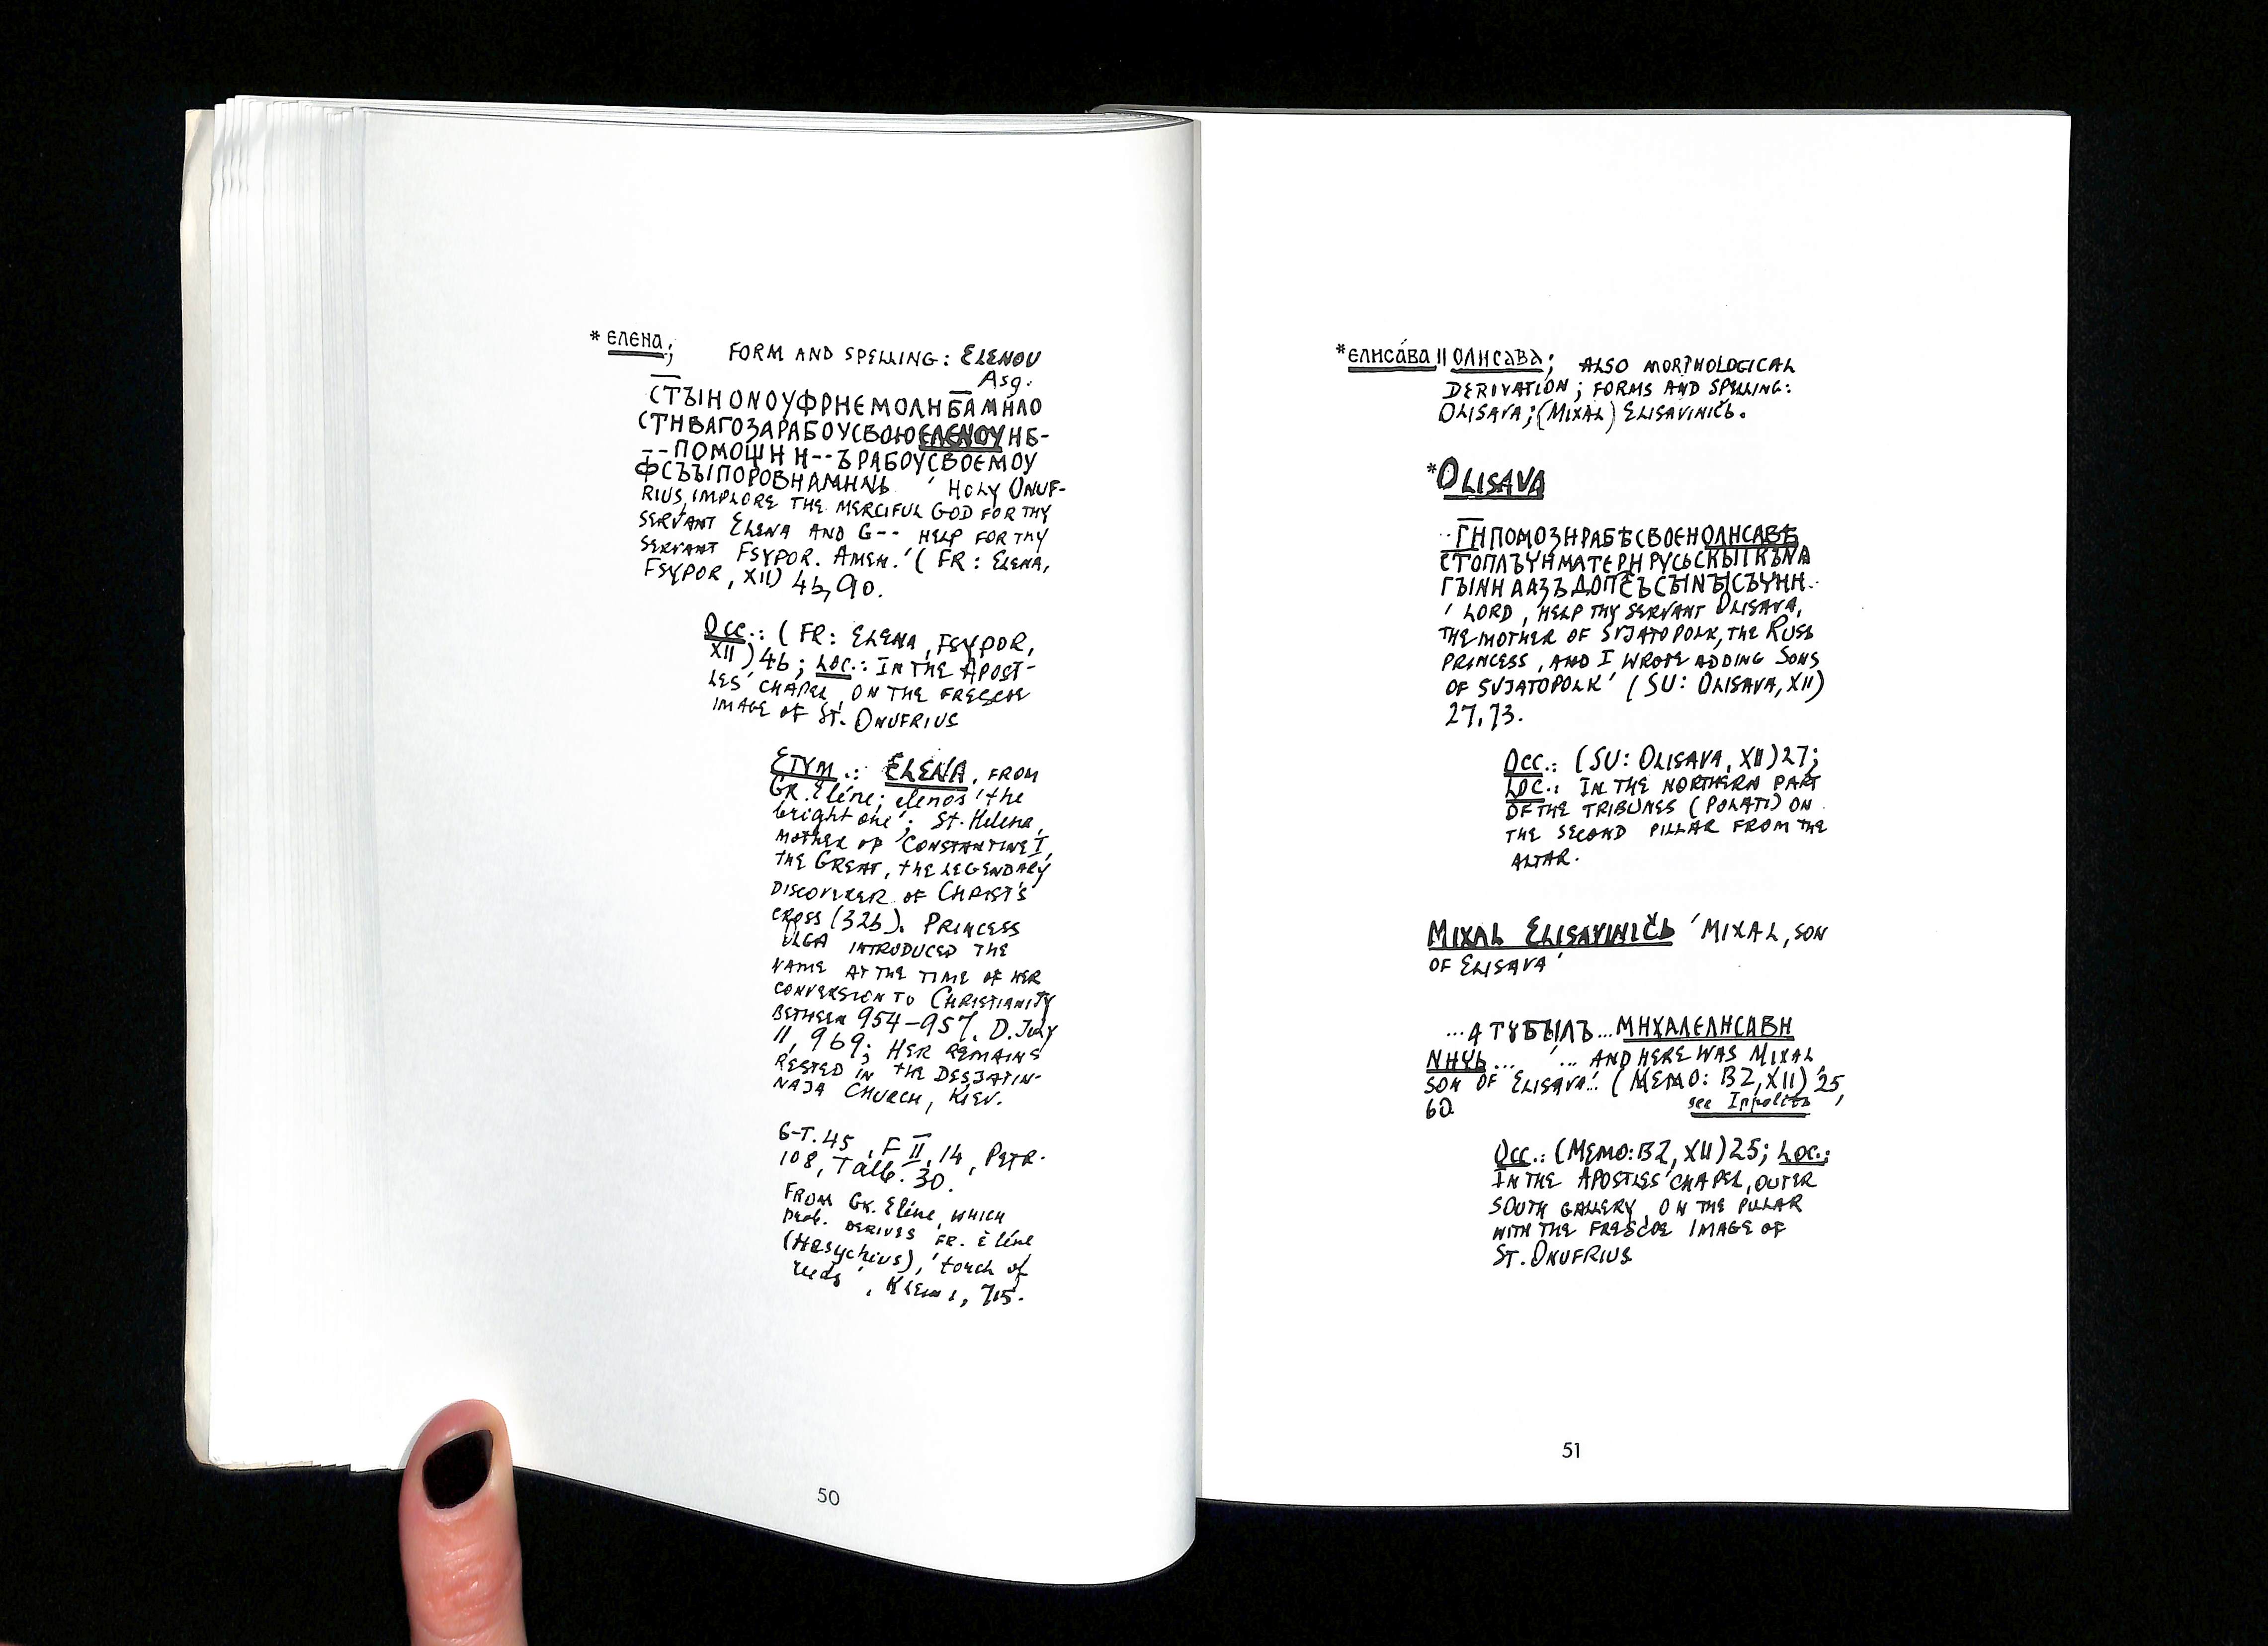 * елена;
FORM AND SPELLING: ELENOU
Asg.
СТЪІНОNОУФРНЄМОЛНБ̅АМНЛО
СТНВАГОЗАРАБОУСВОЮЄЛЄNОУНБ-
--ПОМОЩН Н--ЪРАБОУСВОЄМОУ
ФСЪЪІПОРОВНАМНNЬ ' HOLY ONUF-
RIUS, IMPLORE THE MERCIFUL GOD FOR THY
SERVANT ELENA AND G-- HELP FOR THY
SERVANT FSYPOR. AMEN.' (FR: ELENA,
FSYPOR, XII) 46, 90.
OCC.: (FR: ELENA, FSYPOR,
XII) 46; LOC.: IN THE APOST-
LES' CHAPEL, ON THE FRESCOE
IMAGE OF ST. ONUFRIUS
ETYM.: ELENA, FROM
GR. Eléne; elenos 'the
bright one'; St. Helena,
MOTHER OF CONSTANTINE I,
THE GREAT, THE LEGENDARY
DISCOVERER OF CHRIST'S
CROSS (326). PRINCESS
OLGA INTRODUCED THE
NAME AT THE TIME OF HER
CONVERSION TO CHRISTIANITY
BETWEEN 954-957. D. July
11, 969; HER REMAINS
RESTED IN THE DESJATIN-
NAJA CHURCH, KIEV.
G-T. 45, F II, 14, PETR.
108, Talb. 30.
FROM GR. Eléne, WHICH
prob. DERIVES FR. Eléne
(Hesychius), 'torch of
reeds', KLEIN 1, 715.
50
* елнса́ва || олнсава; ALSO MORPHOLOGICAL
DERIVATION; FORMS AND SPELLING:
OLISAVA; (MIXAL) ELISAVINIČЬ.
*OLISAVA
..Г̅НПОМОЗНРАБѢСВОЄНОЛНСАВѢ
СТОПЛЪЧНМАТЄРНРУСЬСКЪІІКЪNА
ГЪІNНААЗЪДОПС̅ЪСЪІNЪІСЪЧНН..
' LORD, HELP THY SERVANT OLISAVA,
THE MOTHER OF SVJATOPOLK, THE RUSЬ
PRINCESS, AND I WROTE ADDING SONS
OF SVJATOPOLK' (SU: OLISAVA, XII)
27, 73.
OCC.: (SU: OLISAVA, XII) 27;
LOC.: IN THE NORTHERN PART
OF THE TRIBUNES (POLATI) ON
THE SECOND PILLAR FROM THE
ALTAR.
MIXAL ELISAVINIČЬ 'MIXAL, SON
OF ELISAVA'
...АТУБЪІЛЪ...МНХАЛЄЛНСАВН
NНЧЬ... '... AND HERE WAS MIXAL,
SON OF ELISAVA...' (MEMO: B2, XII) 25,
60.
see Ippolitъ
OCC.: (MEMO: B2, XII) 25; LOC.:
IN THE APOSTLES' CHAPEL, OUTER
SOUTH GALLERY, ON THE PILLAR
WITH THE FRESCOE IMAGE OF
ST. ONUFRIUS
51